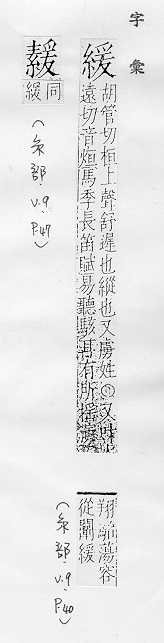 字彙
緩
胡管切桓上聲舒遲也縱也又虜姓○又
遠切音烜馬季長笛賦易聽駭耳有所搖演
翔驎蕩容
從闡緩
（糸部．V.9．P.40）
䌦
同
緩
（糸部．V.9．P.47）